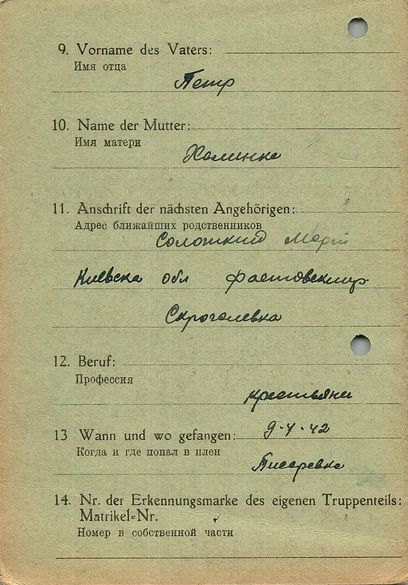 9. Vorname des Vaters:
Имя отца
Петр
10. Name der Mutter:
Имя матери
Халимка
11. Anschrift der nächsten Angehörigen:
Адрес ближайших родственников
Солошкий Марі
Киевска обл фастовский р
Скрогалевка
12. Beruf:
Профессия
крестьянин
13 Wann und wo gefangen:
9-4-42
Когда и где попал в плен
Писаревка
14. Nr. der Erkennungsmarke des eigenen Truppenteils:
Matrikel-Nr.
Номер в собственной части